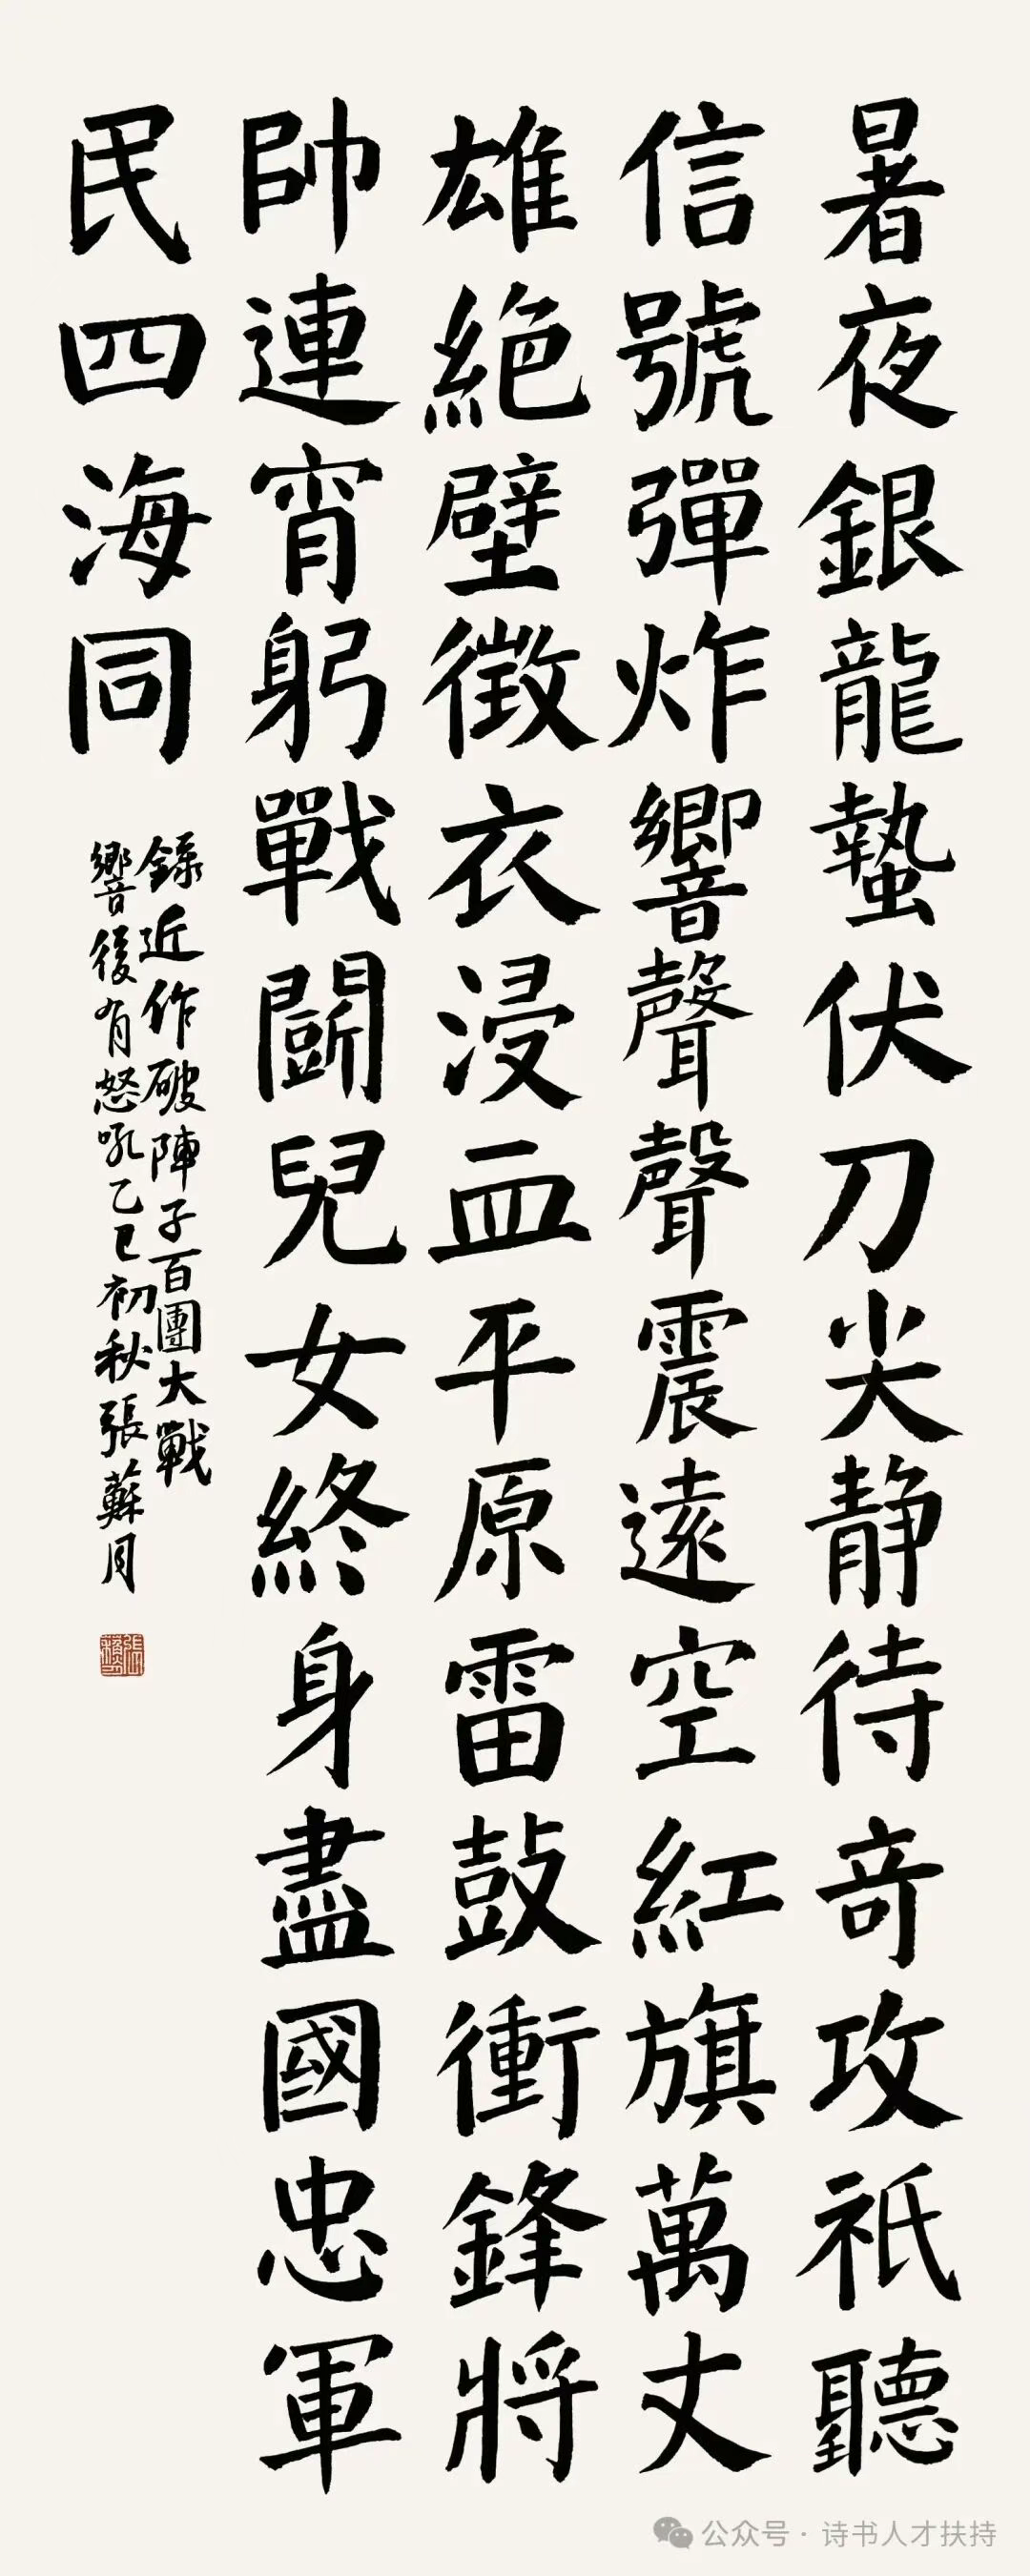 暑夜銀龍蟄伏刀尖静待奇攻祇聽
信號彈炸響聲聲震遠空紅旗萬丈
雄絕壁徵衣浸血平原雷鼓衝鋒將
帥連宵躬戰鬭兒女終身盡國忠軍
民四海同
錄近作破陣子百團大戰
響後有怒吼乙巳初秋張蘇月
公众号·诗书人才扶持